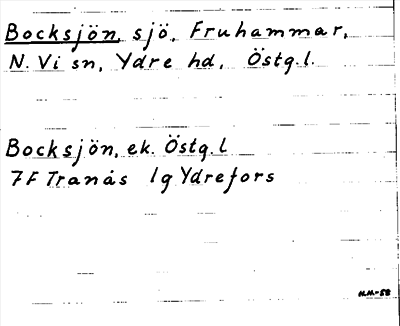 Bocksjön, sjö, Fruhammar,
N. Vi sn, Ydre hd, Östg.l.
Bocksjön, ek. Östg.l
7F Tranås 1g Ydrefors
N.M-58